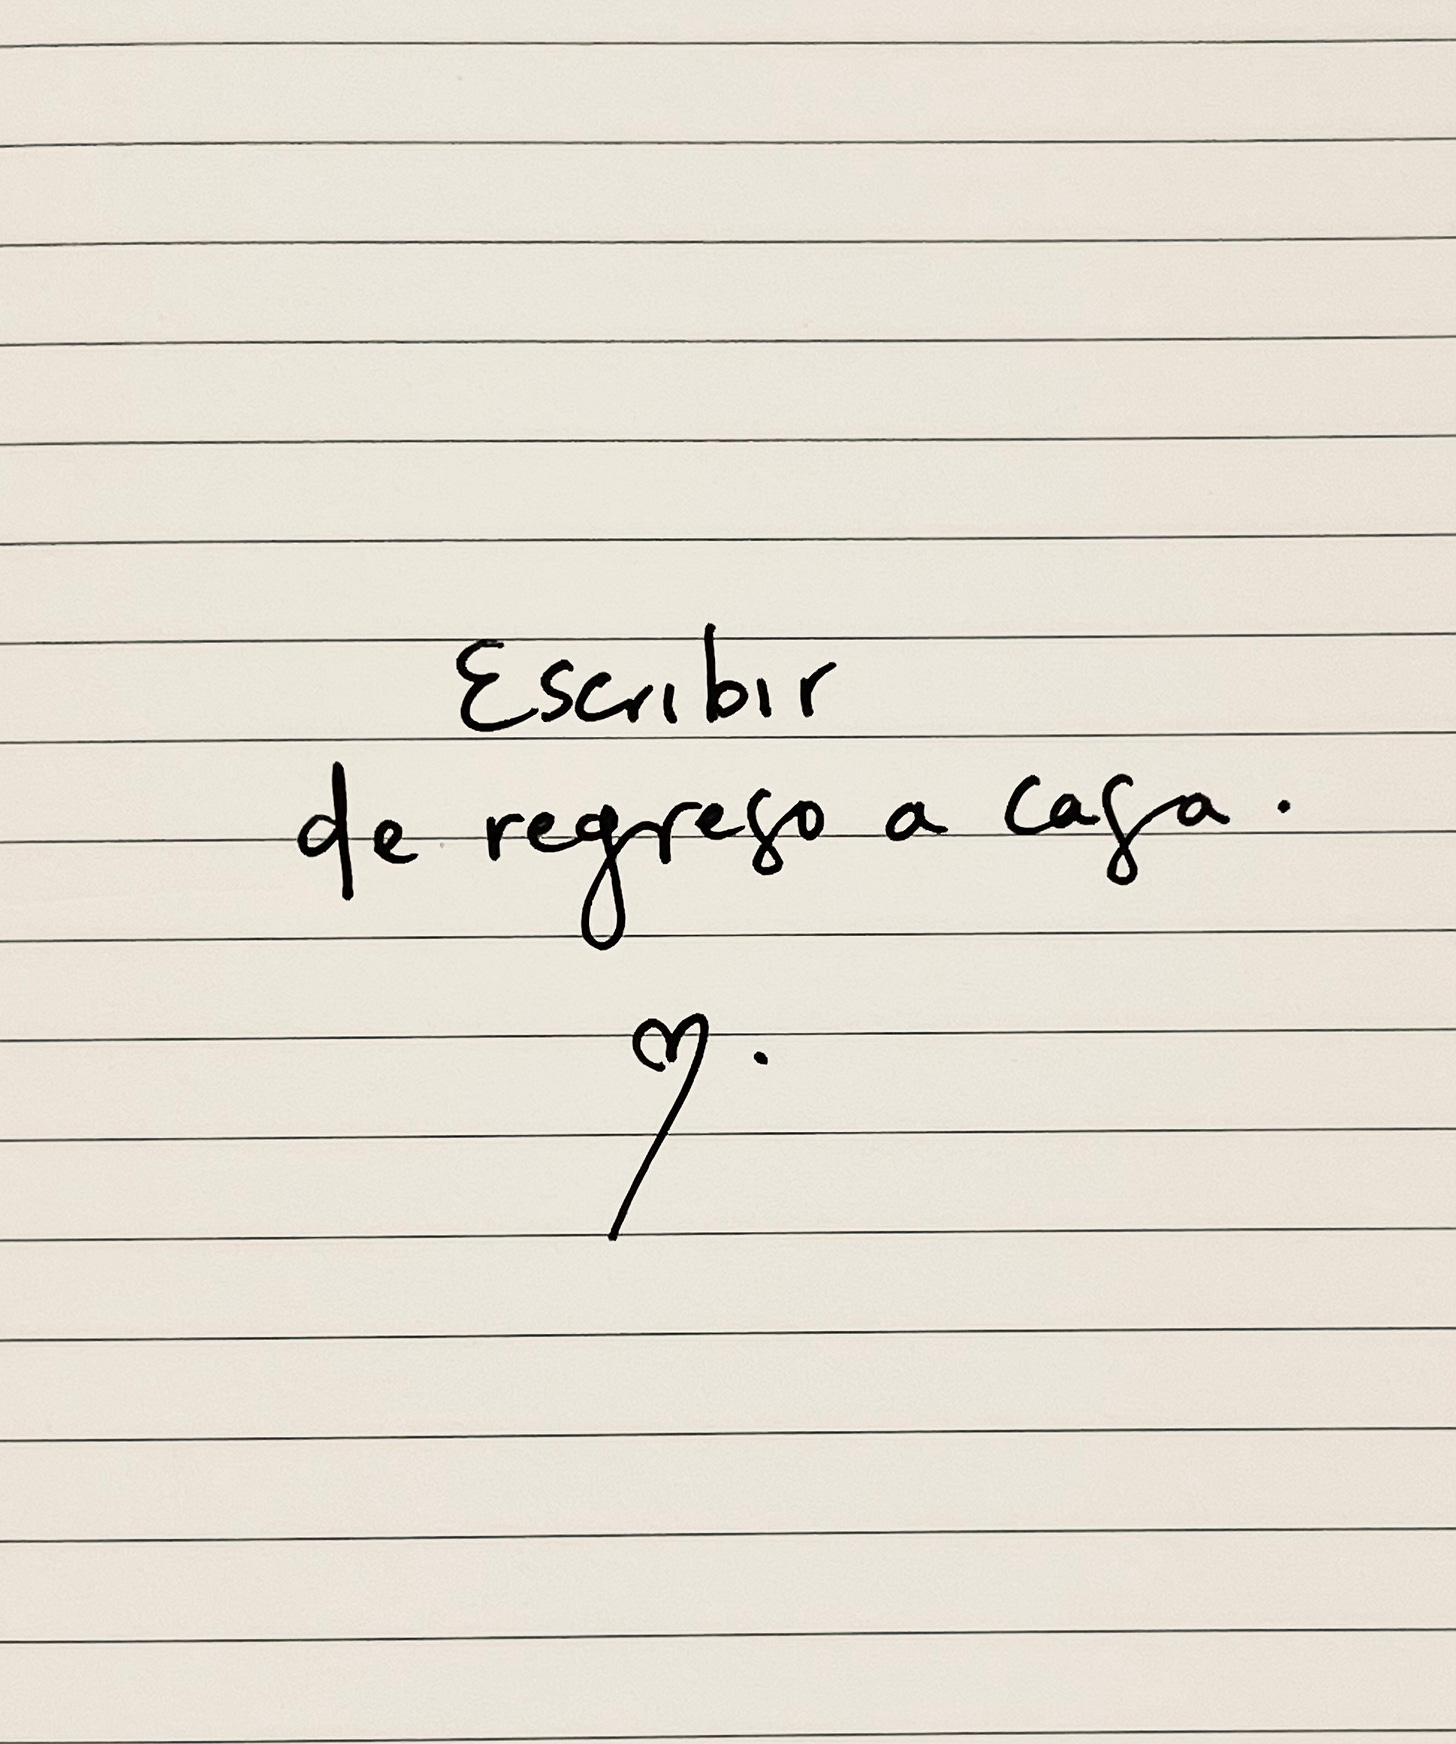 Escribir
de regreso a casa.
M.